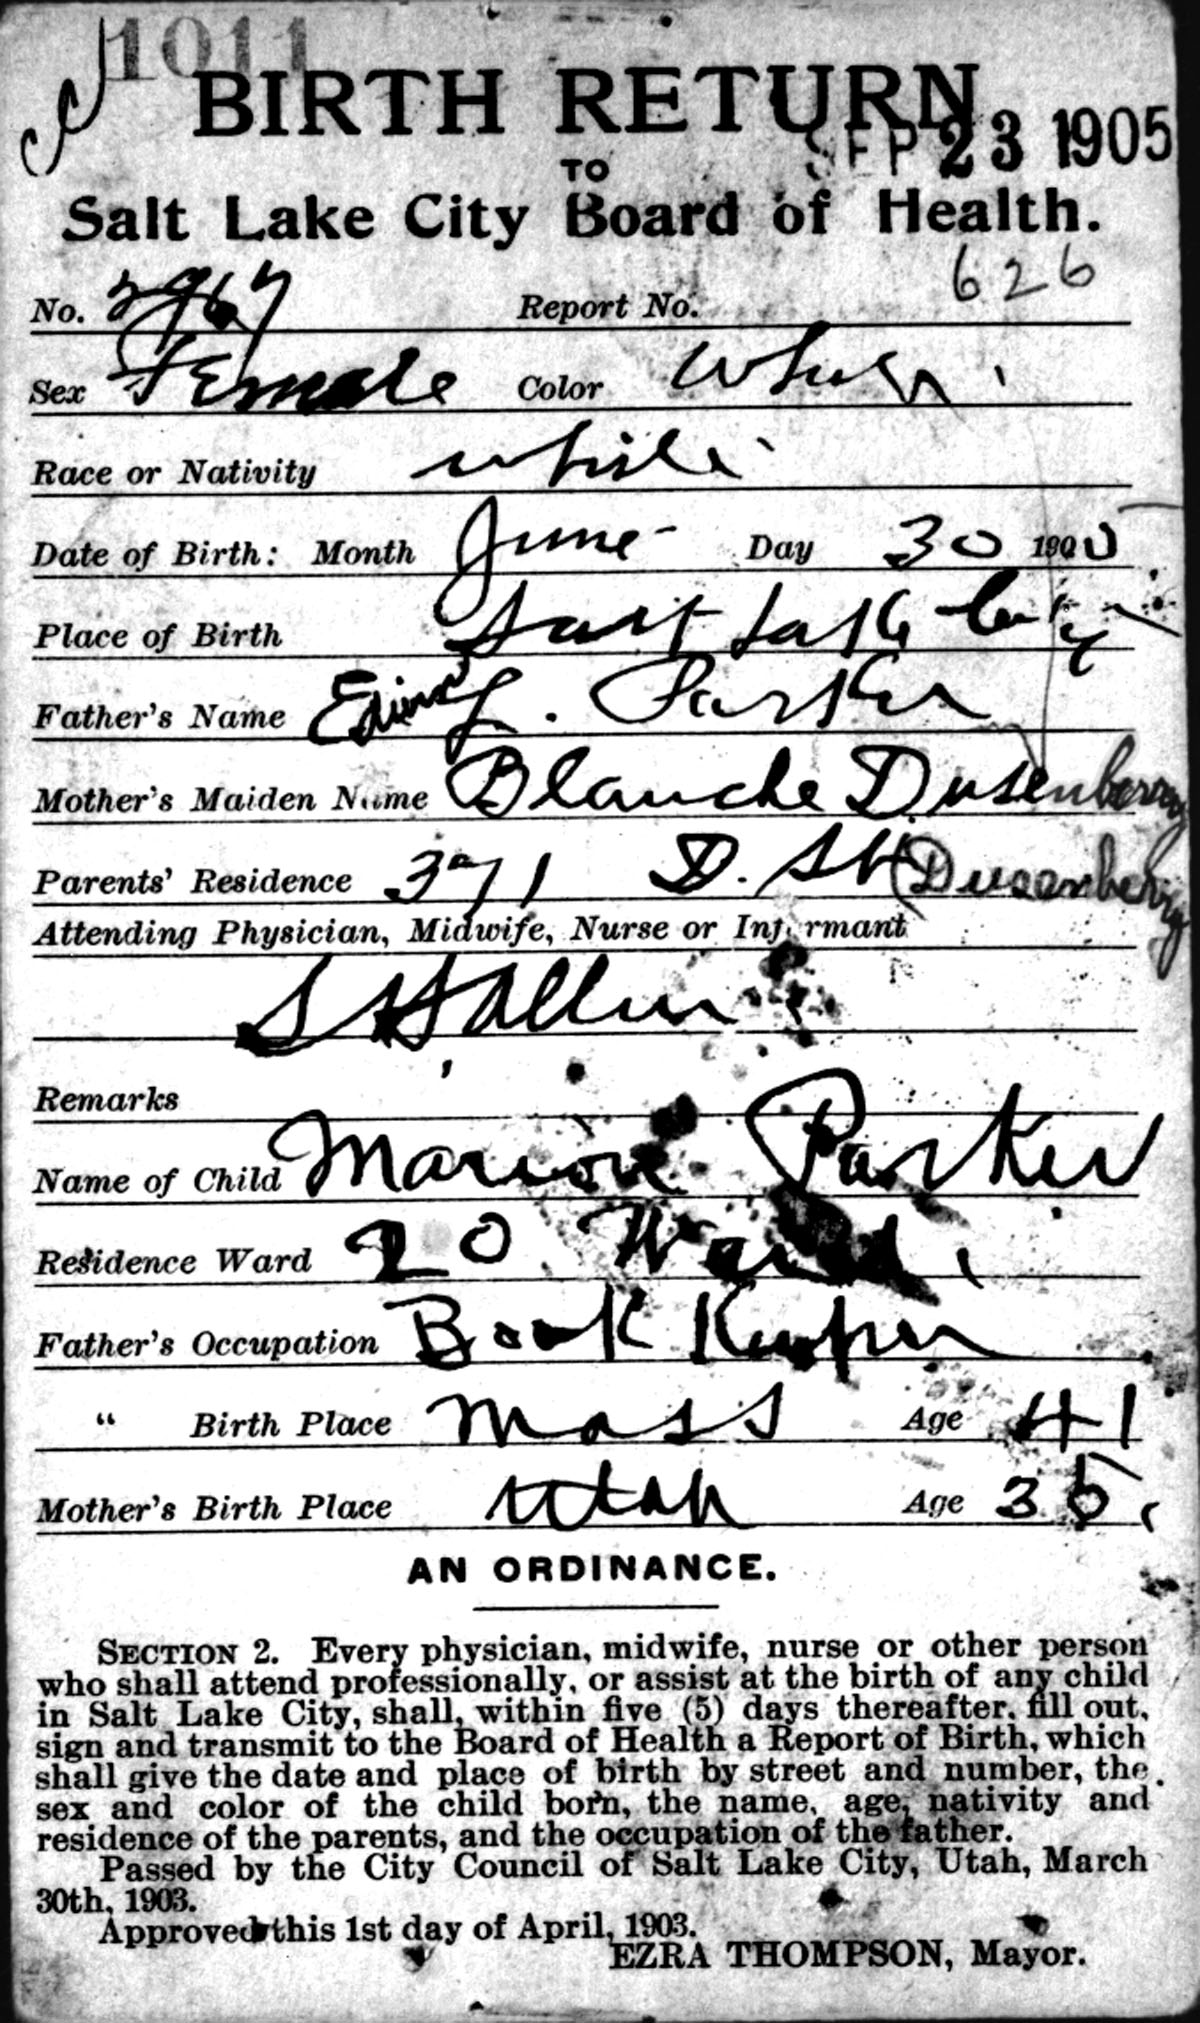 1011
BIRTH RETURN
SEP 23 1905
TO
Salt Lake City Board of Health.
No. Report No. 626
Sex Female Color White
Race or Nativity white
Date of Birth: Month June Day 30 1905
Place of Birth Salt Lake City
Father's Name L. Parker
Mother's Maiden Name Blanche Dusenberry
Parents' Residence 371 D. St (Dusenberry
Attending Physician, Midwife, Nurse or Informant
S H Allen
Remarks
Name of Child Marion Parker
Residence Ward 20 Ward.
Father's Occupation Book Keeper
" Birth Place Mass Age 41
Mother's Birth Place Utah Age 35
AN ORDINANCE.
SECTION 2. Every physician, midwife, nurse or other person
who shall attend professionally, or assist at the birth of any child
in Salt Lake City, shall, within five (5) days thereafter, fill out,
sign and transmit to the Board of Health a Report of Birth, which
shall give the date and place of birth by street and number, the
sex and color of the child born, the name, age, nativity and
residence of the parents, and the occupation of the father.
Passed by the City Council of Salt Lake City, Utah, March
30th, 1903.
Approved this 1st day of April, 1903.
EZRA THOMPSON, Mayor.